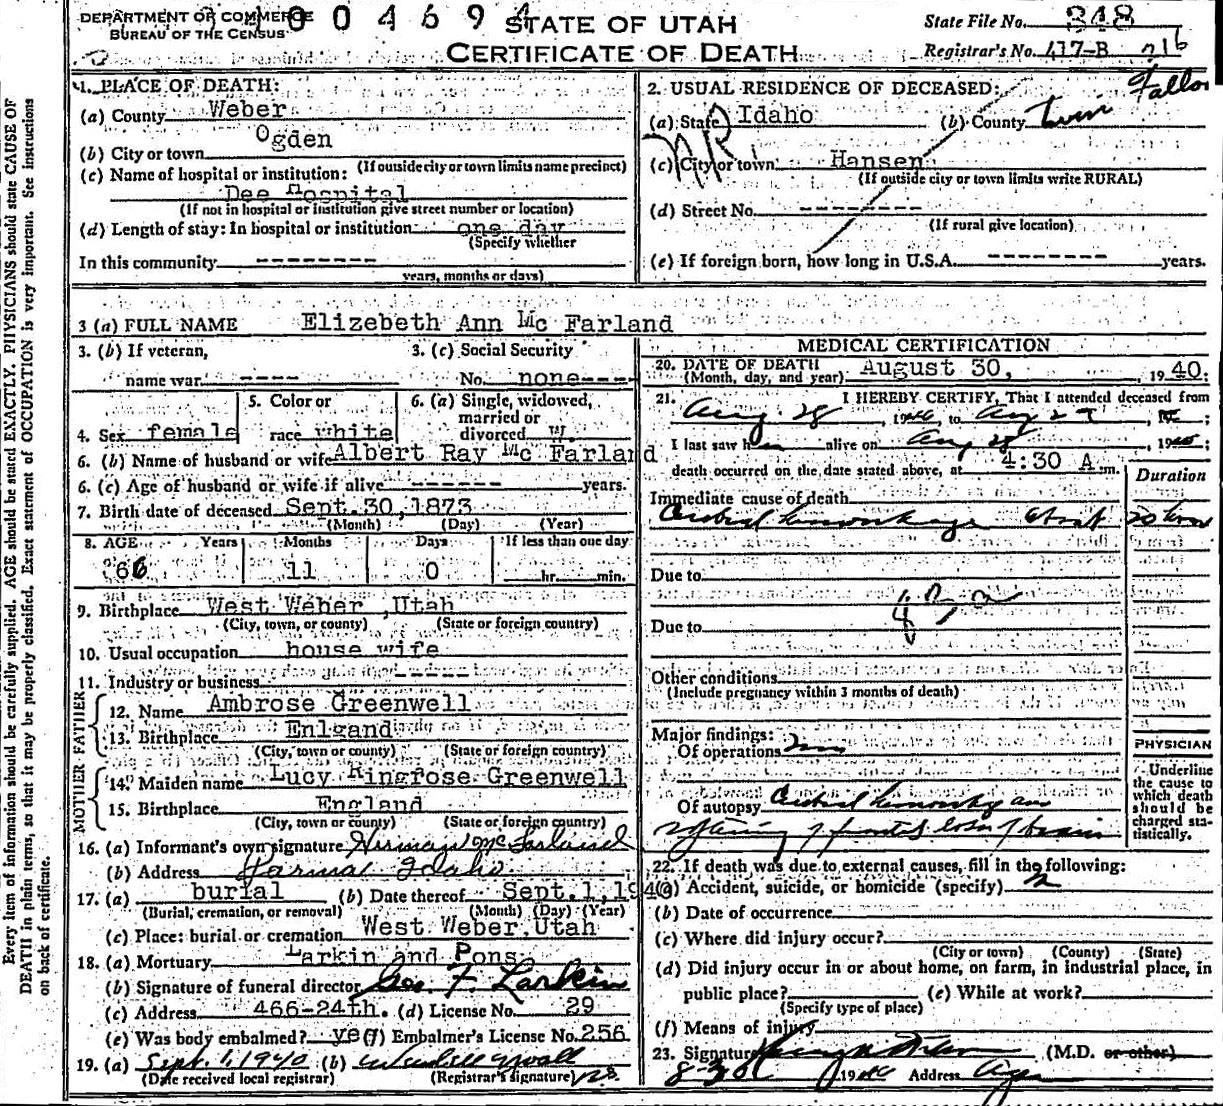 DEPARTMENT OF COMMERCE
BUREAU OF THE CENSUS
004694
STATE OF UTAH
CERTIFICATE OF DEATH
State File No. 348
Registrar's No. 417-B 716
1. PLACE OF DEATH:
(a) County Weber
(b) City or town Ogden
(If outside city or town limits name precinct)
(c) Name of hospital or institution:
Dee Hospital
(If not in hospital or institution give street number or location)
(d) Length of stay: In hospital or institution one day
(Specify whether
In this community --------
years, months or days)
2. USUAL RESIDENCE OF DECEASED:
(a) State Idaho (b) County Twin Falls
NR
(c) City or town: Hansen
(If outside city or town limits write RURAL)
(d) Street No. --------
(If rural give location)
(e) If foreign born, how long in U.S.A. -------- years.
3 (a) FULL NAME Elizebeth Ann Mc Farland
3. (b) If veteran,
name war ----
3. (c) Social Security
No. none---
4. Sex female
5. Color or
race white
6. (a) Single, widowed,
married or
divorced W.
6. (b) Name of husband or wife Albert Ray Mc Farland
6. (c) Age of husband or wife if alive ------ years.
7. Birth date of deceased Sept.30,1873
(Month) (Day) (Year)
8. AGE Years Months Days If less than one day
66 11 0 hr. min.
9. Birthplace West Weber ,Utah
(City, town, or county) (State or foreign country)
10. Usual occupation house wife
11. Industry or business -----
FATHER
12. Name Ambrose Greenwell
13. Birthplace Enlgand
(City, town or county) (State or foreign country)
MOTHER
14. Maiden name Lucy Ringrose Greenwell
15. Birthplace England
(City, town or county) (State or foreign country)
16. (a) Informant's own signature Herman Mc Farland
(b) Address Parma Idaho
17. (a) burial (b) Date thereof Sept.1,1940
(Burial, cremation, or removal) (Month) (Day) (Year)
(c) Place: burial or cremation West Weber,Utah
18. (a) Mortuary Larkin and Sons
(b) Signature of funeral director Geo. F. Larkin
(c) Address 466-24th. (d) License No. 29
(e) Was body embalmed? yes (f) Embalmer's License No. 256
19. (a) Sept. 1, 1940 (b)
(Date received local registrar) (Registrar's signature)
MEDICAL CERTIFICATION
20. DATE OF DEATH
(Month, day, and year) August 30, , 1940;
21. I HEREBY CERTIFY, That I attended deceased from
Aug 28, 1940, to Aug 29, ;
I last saw h alive on Aug 28, 1940;
death occurred on the date stated above, at 4:30 A.m.
Duration
Immediate cause of death
Cerebral hemorrhage about 20 hrs
Due to
Due to
Other conditions
(Include pregnancy within 3 months of death)
Major findings:
Of operations
Of autopsy Cerebral hemorrhage
of frontal lobes of brain
PHYSICIAN
Underline
the cause to
which death
should be
charged sta-
tistically.
22. If death was due to external causes, fill in the following:
(a) Accident, suicide, or homicide (specify)
(b) Date of occurrence
(c) Where did injury occur?
(City or town) (County) (State)
(d) Did injury occur in or about home, on farm, in industrial place, in
public place? (e) While at work?
(Specify type of place)
(f) Means of injury
23. Signature (M.D. or other)
8-30 1940 Address
Every item of information should be carefully supplied. AGE should be stated EXACTLY. PHYSICIANS should state CAUSE OF
DEATH in plain terms, so that it may be properly classified. Exact statement of OCCUPATION is very important. See instructions
on back of certificate.